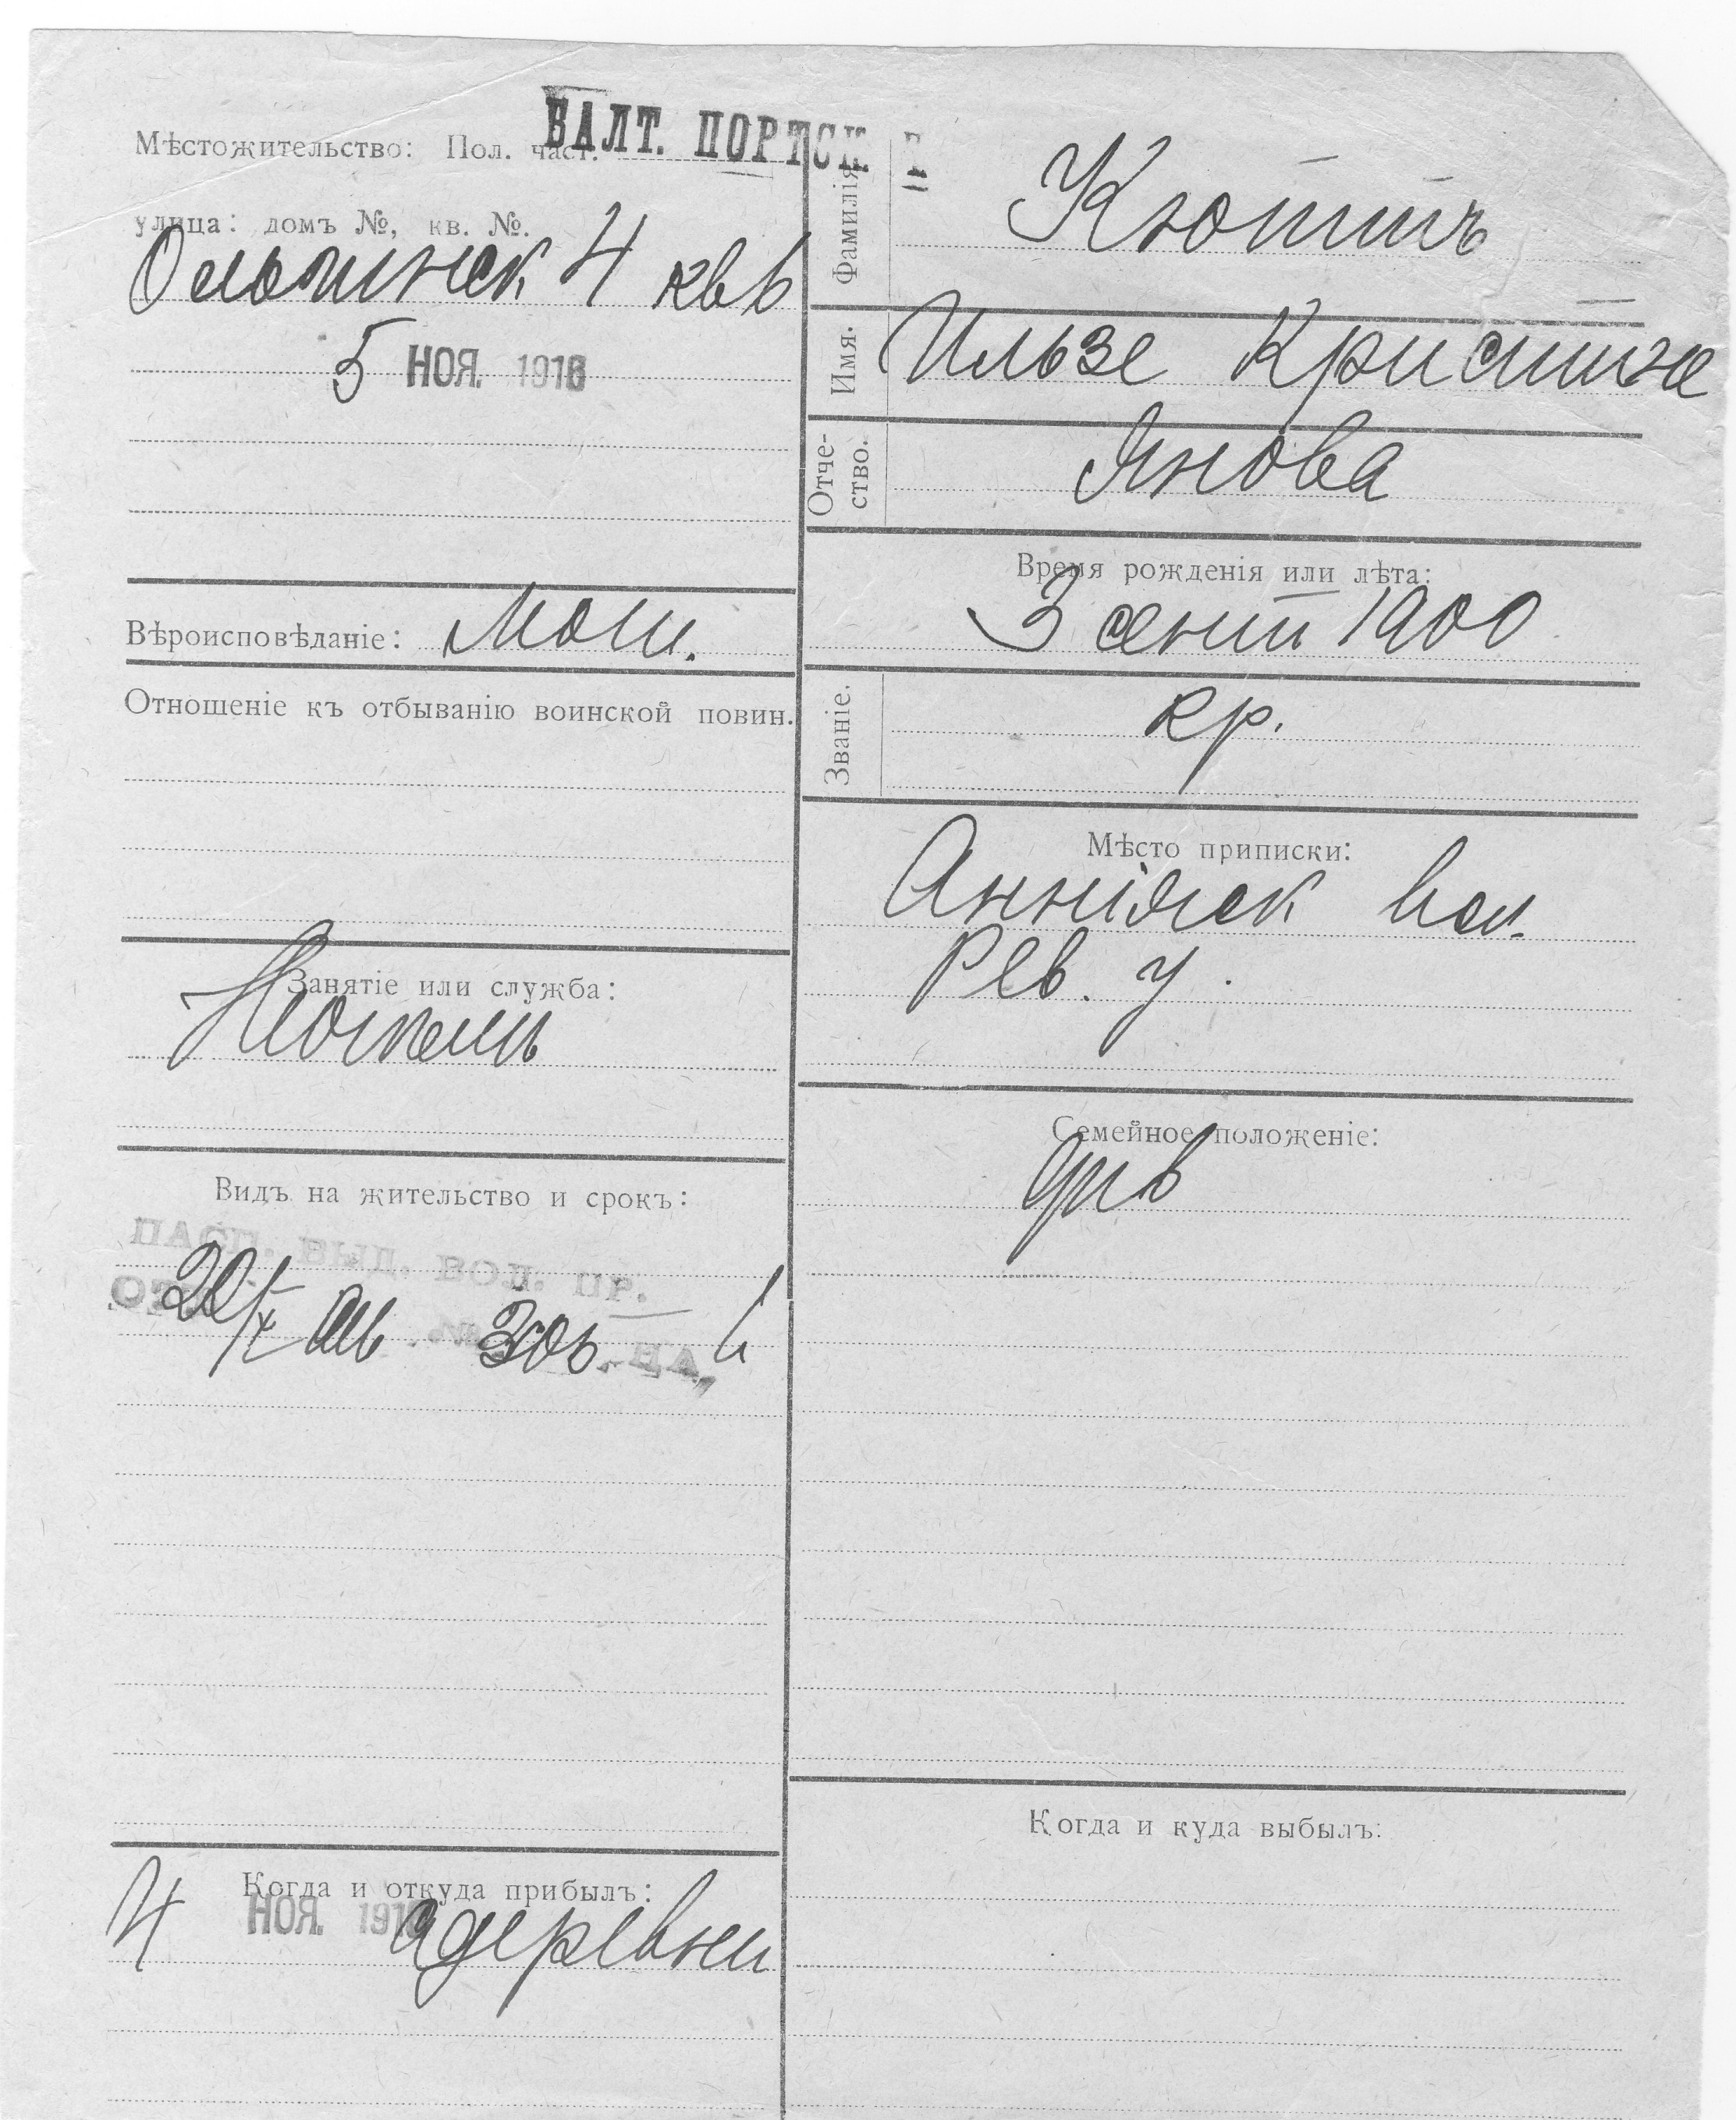 Мѣстожительство: Пол. част. БАЛТ. ПОРТСК.
улица: домъ №, кв. №.
4 кв 6
5 НОЯ. 1916
Вѣроисповѣданіе: лют.
Отношеніе къ отбыванію воинской повин.
Занятіе или служба:
Видъ на жительство и срокъ:
ПАСП. ВЫД. ВОЛ. ПР.
Когда и откуда прибылъ:
4 НОЯ. 191 деревни
Фамилія Кюттъ
Имя. Ильзе Кристине
Отче-
ство. Янова
Время рожденія или лѣта:
3 сент 1900
Званіе. кр.
Мѣсто приписки:
Аннійск вол.
Рев. у.
Семейное положеніе:
Когда и куда выбылъ: